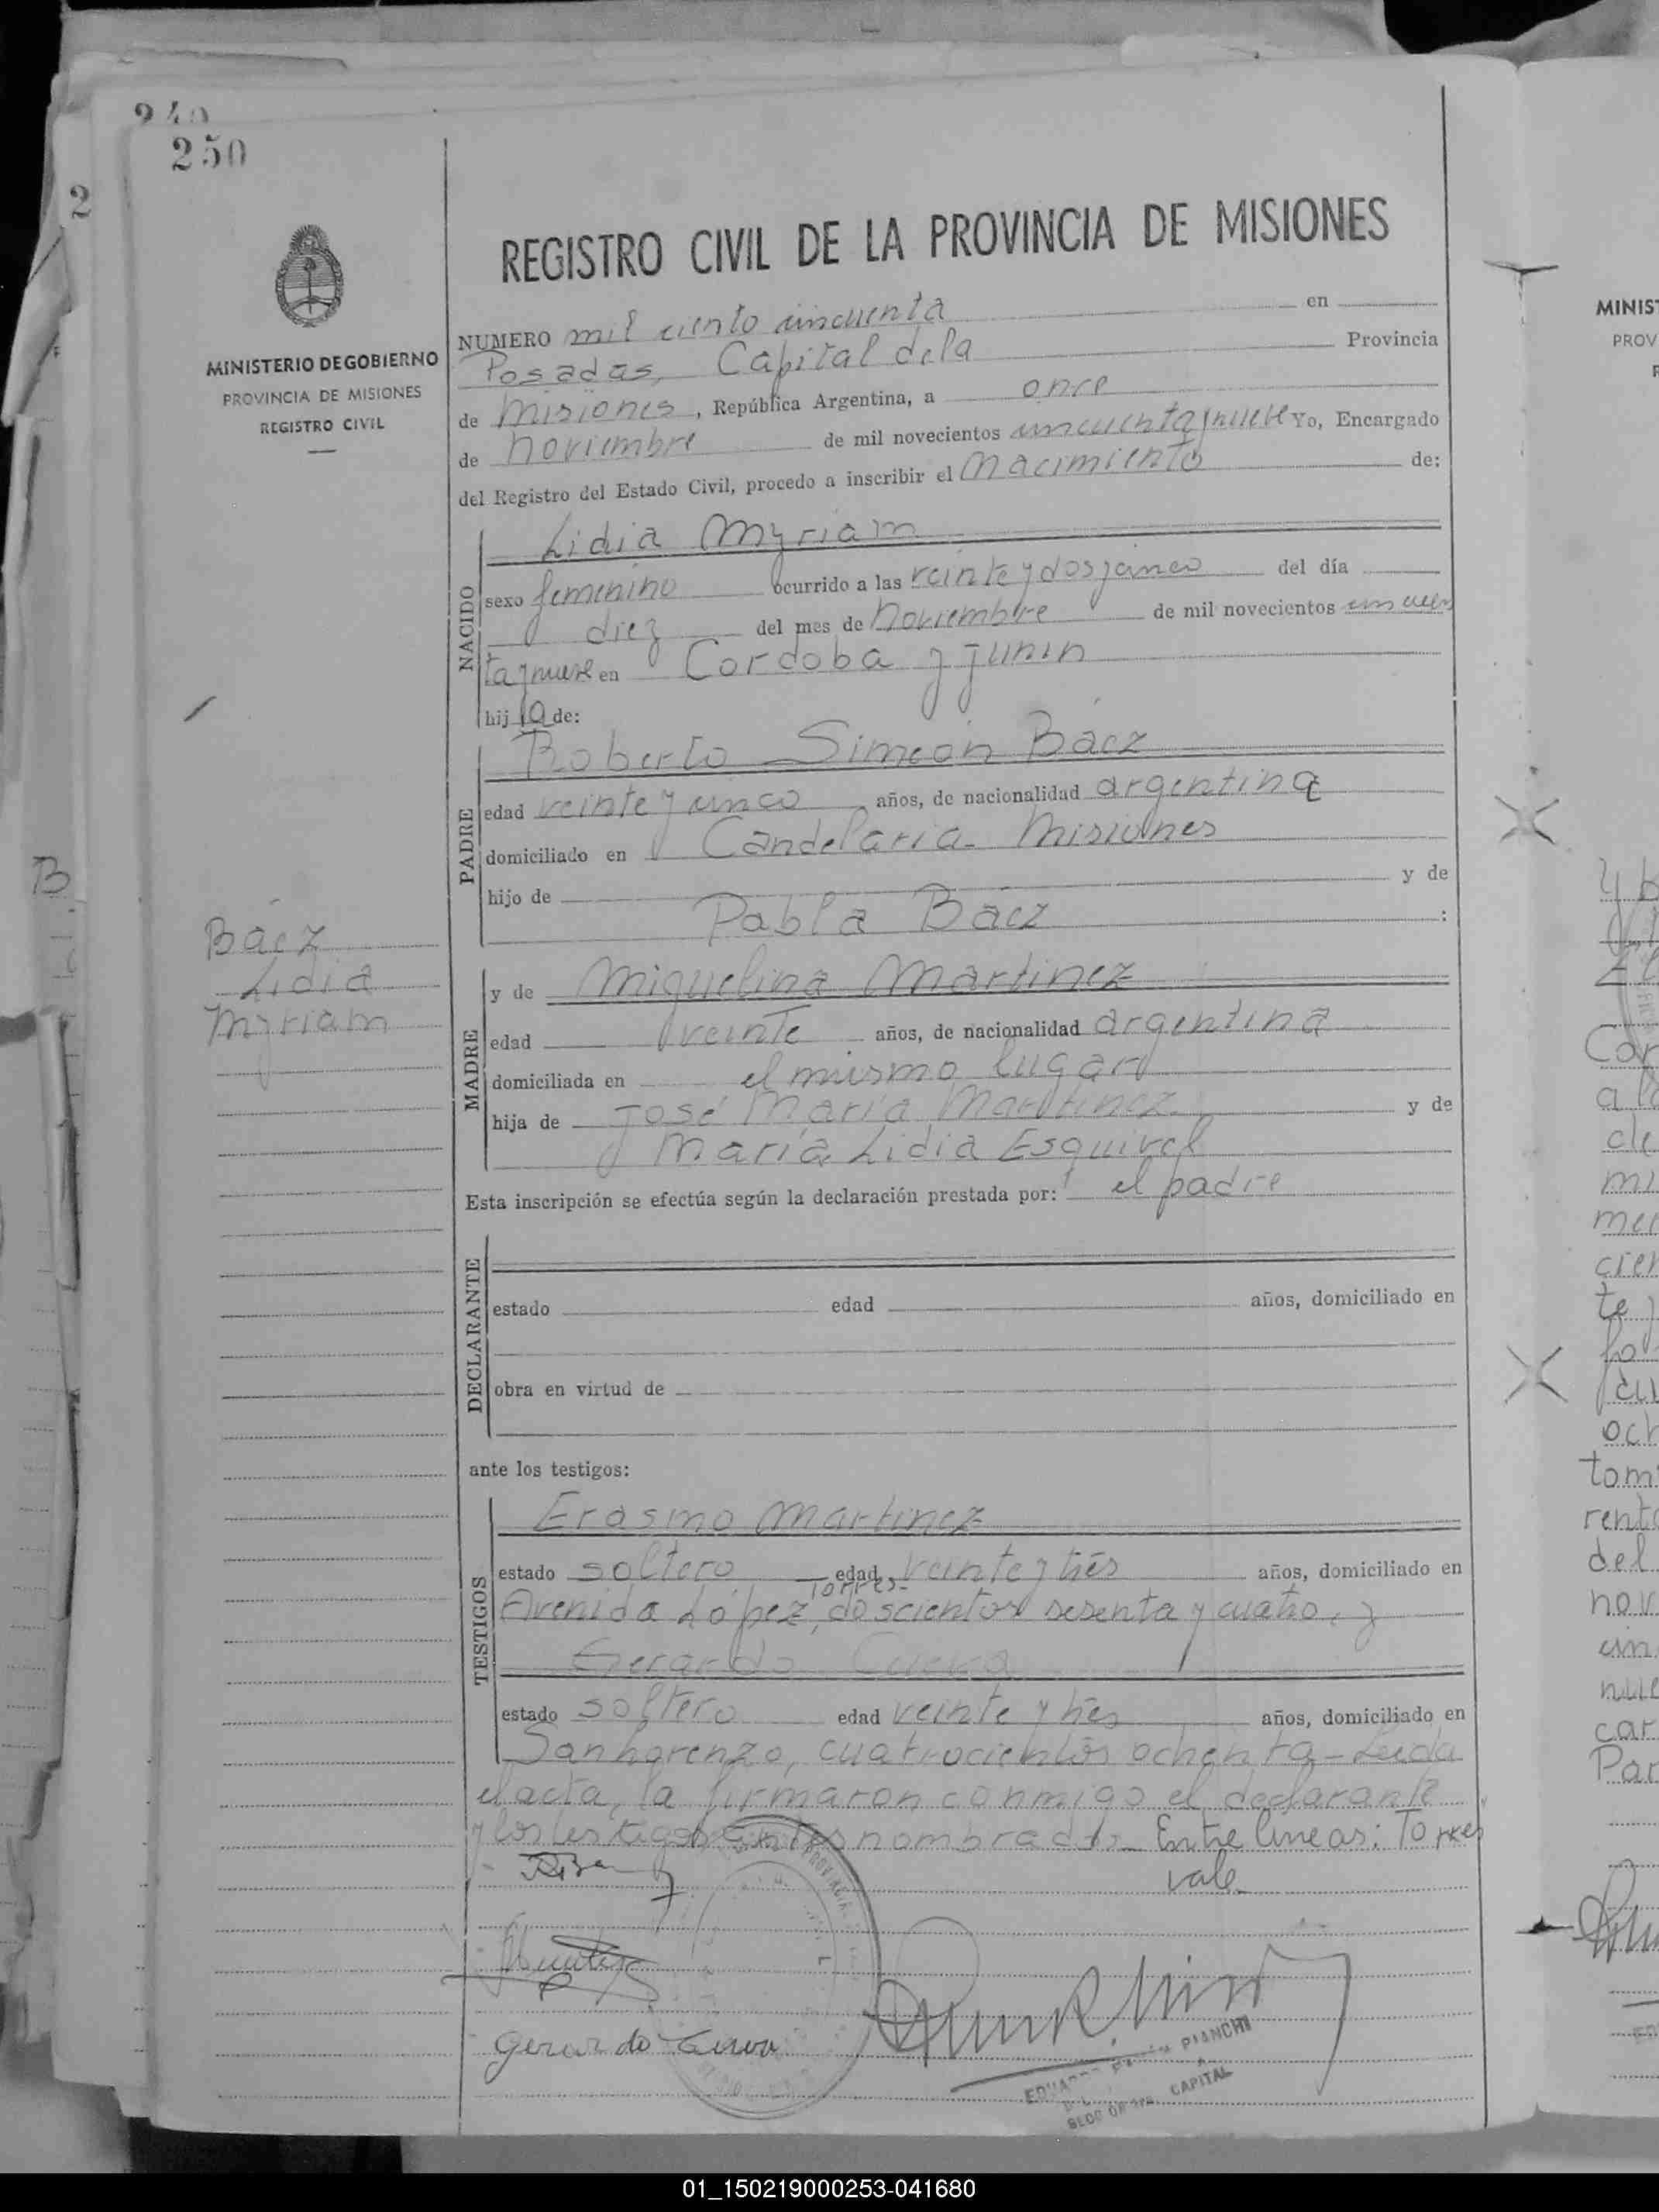 250
2
REGISTRO CIVIL DE LA PROVINCIA DE MISIONES
MINISTERIO DE GOBIERNO
PROVINCIA DE MISIONES
REGISTRO CIVIL
NUMERO mil ciento cincuenta en
Posadas, Capital de la Provincia
de Misiones, República Argentina, a once
de noviembre de mil novecientos cincuenta y nueve Yo, Encargado
del Registro del Estado Civil, procedo a inscribir el nacimiento de:
NACIDO
Lidia Myriam
sexo femenino ocurrido a las veinte y dos y cinco del día
diez del mes de Noviembre de mil novecientos cincuen
ta y nueve en Cordoba y Junin
hij a de:
PADRE
Roberto Simeón Báez
edad veinte y cinco años, de nacionalidad argentina
domiciliado en Candelaria - Misiones
hijo de y de
Pabla Báez :
MADRE
y de Miguelina Martinez
edad veinte años, de nacionalidad argentina
domiciliada en el mismo lugar
hija de José María Martinez y de
María Lidia Esquivel
Esta inscripción se efectúa según la declaración prestada por: el padre
Báez
Lidia
Myriam
DECLARANTE
estado edad años, domiciliado en
obra en virtud de
ante los testigos:
TESTIGOS
Erasmo Martinez
estado soltero edad veinte y tres años, domiciliado en
Torres-
Avenida López, doscientos sesenta y cuatro, y
Gerardo Cueva
estado soltero edad veinte y tres años, domiciliado en
San Lorenzo, cuatrocientos ochenta - Leida
el acta, la firmaron conmigo el declarante
y los testigos antes nombrados - Entre lineas: Torres
vale
Gerardo Cueva
PIANCHI
CAPITAL
MINIST
PROV
01_150219000253-041680